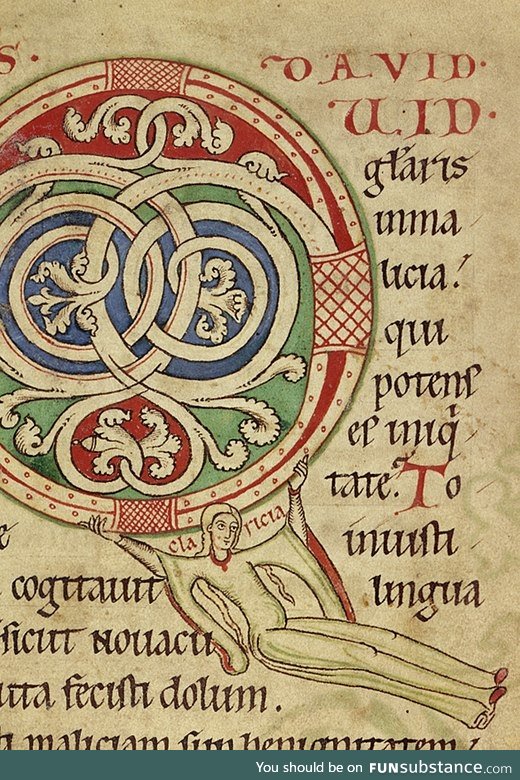 S.
DAVID.
UID.
gl̄aris
inma
licia.
qui
potens
es iniq̇
tate. To
cla ricia
e
inuisti
cogitauit
lingua
sicut nouacu
ta fecisti dolum.
maliciam sup̄ benignitatem
You should be on FUNsubstance.com